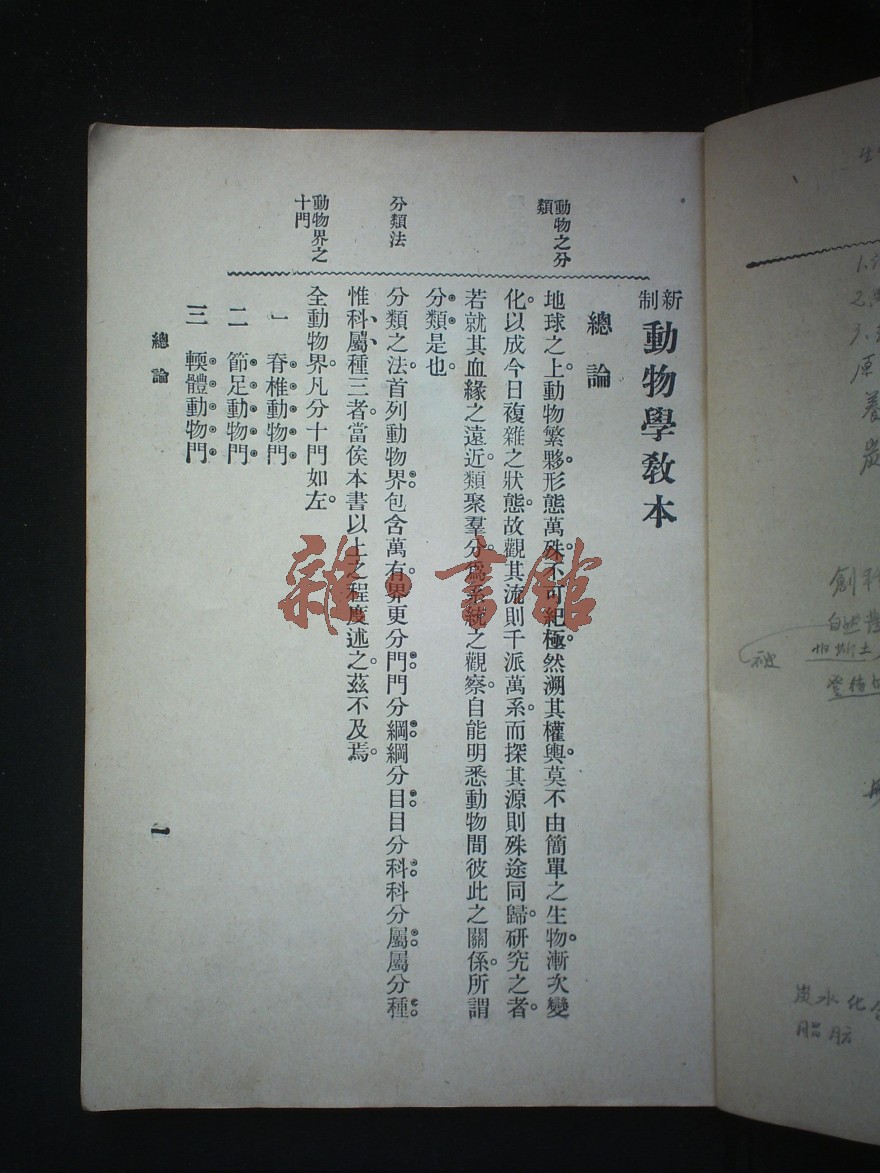 新制動物學教本
總論
動物之分類
地球之上。動物繁夥。形態萬殊。不可紀極。然溯其權輿。莫不由簡單之生物。漸次變
化。以成今日複雜之狀態。故觀其流。則千派萬系。而探其源。則殊途同歸。研究之者。
若就其血緣之遠近。類聚羣分。爲系統之觀察。自能明悉動物間彼此之關係。所謂
分類是也。
分類法
分類之法。首列動物界。包含萬有。界更分門。門分綱。綱分目。目分科。科分屬。屬分種。
惟科、屬、種三者。當俟本書以上之程度述之。茲不及焉。
動物界之十門
全動物界。凡分十門如左。
一 脊椎動物門
二 節足動物門
三 輭體動物門
總論
一
雜·書館
創
自然
炭水化
脂肪